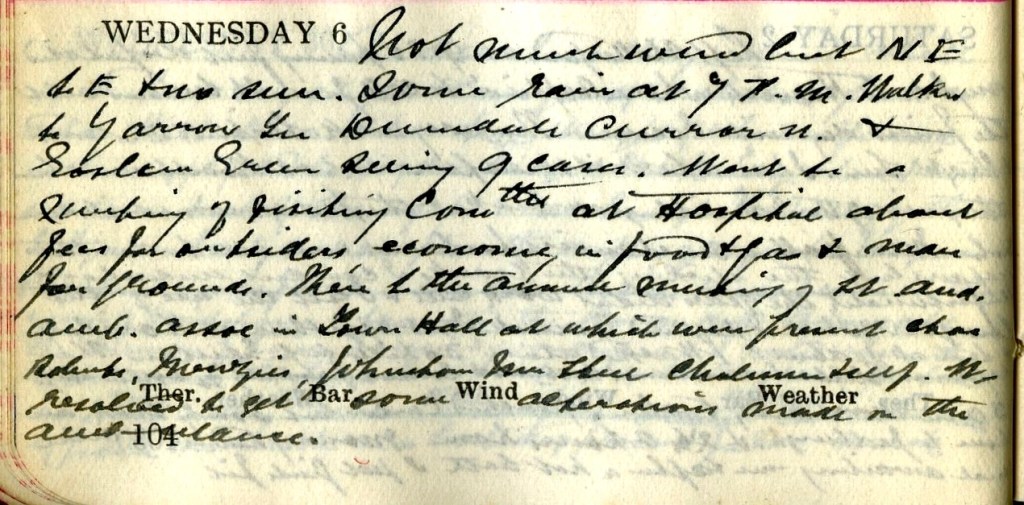 WEDNESDAY 6 Not much wind but NE
to E & no sun. Some rain at 7 P.M. Walked
to Yarrow Dunsdale Currar n. &
Eoslem Green seeing 9 cases. Went to a
meeting of Visiting Comttee at Hospital about
fees for outsiders economy in food & gas & man
for grounds. Then to the annual meeting of St And.
amb. assoc in Town Hall at which were present Chas
Roberts, Menzies, Johnston Chalmers & self. We
Ther. Bar. Wind Weather
resolved to get some alterations made on the
104
ambulance.